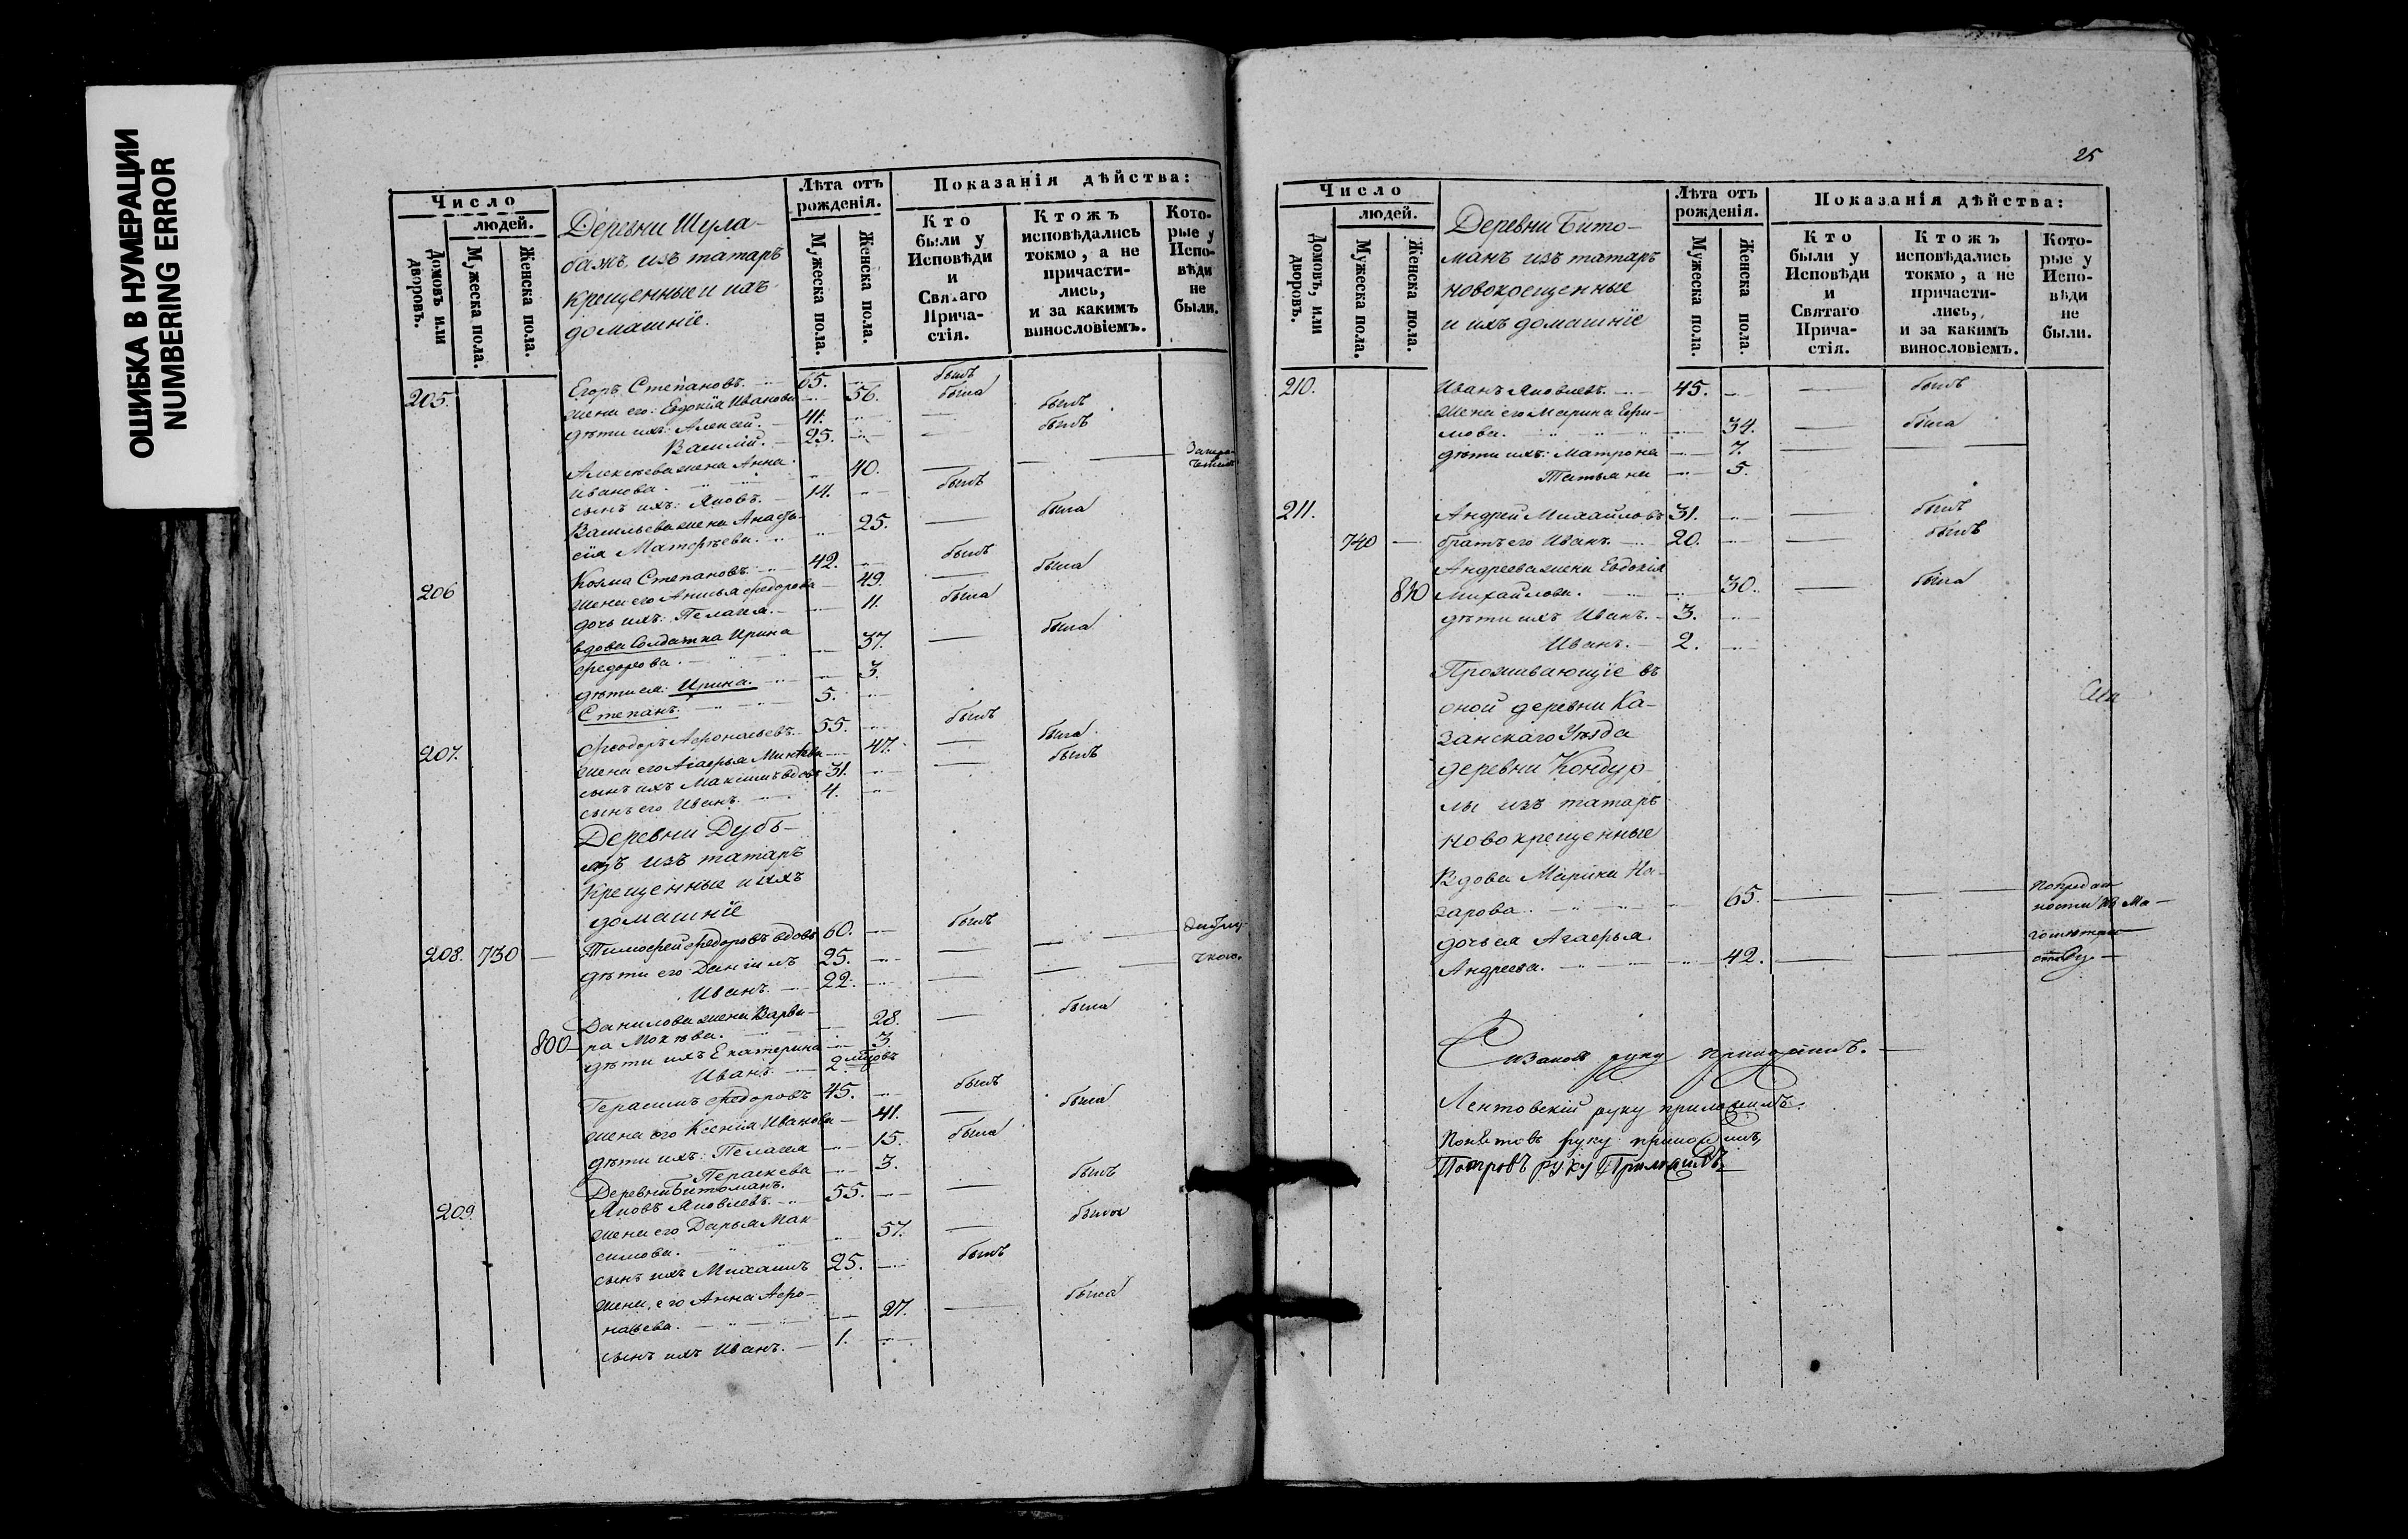 ОШИБКА В НУМЕРАЦИИ
NUMBERING ERROR
Число
людей.
Домовъ или дворовъ.
Мужеска пола.
Женска пола.
Деревни Шула-
башъ изъ татаръ
крещенные и ихъ
домашніе.
Лѣта отъ рожденія.
Мужеска пола.
Женска пола.
Показанія дѣйства:
Кто были у Исповѣди и Святаго Прича-стія.
Ктожъ исповѣдались токмо, а не причасти-лись, и за какимъ винословіемъ.
Кото-рые у Испо-вѣди не были.
205. Егоръ Степановъ. 65. былъ
жена его: Евдокія Иванова 56. была
дѣти ихъ: Алексей. 41. былъ
Василій. 25. былъ
Алексѣева жена Анна
Иванова. 40.
сынъ ихъ: Яковъ. 14. былъ
Васильева жена Анаста-
сія Матфѣева. 25. была
206 Козма Степановъ. 42. былъ
жена его Анисья Федорова 49. была
дочь ихъ: Пелагея. 11. была
вдова Солдатка Ирина
Федорова. 37. была
дѣти ея: Ирина. 3.
Степанъ. 5.
207. Феодоръ Афонасьевъ. 55. былъ
жена его Агафья Минѣева 47. была
сынъ ихъ Максимъ вдовъ 31. былъ
сынъ его Иванъ. 4.
Деревни Дубъ-
язъ изъ татаръ
Крещенные и ихъ
домашніе
208. 730 — Тимофей Федоровъ вдовъ 60. былъ
дѣти его Даніилъ 25.
Иванъ. 22.
Данилова жена Варва-
800 ра Мокѣева. 28. была
дѣти ихъ Екатерина 3.
Иванъ. 2 мѣсяцовъ
Герасимъ Федоровъ 45. былъ
жена его Ксенія Иванова 41. была
дѣти ихъ: Пелагея 15. была
Параскева 3.
Деревни Битоманъ.
209. Яковъ Яковлевъ. 55. былъ
жена его Дарья Мак-
симова. 57. была
сынъ ихъ Михаилъ 25. былъ
жена, его Анна Афо-
насьева. 27. была
сынъ ихъ Иванъ. 1.
25
Число
людей.
Домовъ, или дворовъ.
Мужеска пола.
Женска пола.
Деревни Бито-
манъ изъ татаръ
новокрещенные
и ихъ домашніе
Лѣта отъ рожденія.
Мужеска пола.
Женска пола.
Показанія дѣйства:
Кто были у Исповѣди и Святаго Прича-стія.
Ктожъ исповѣдались токмо, а не причасти-лись, и за какимъ винословіемъ.
Кото-рые у Испо-вѣди не были.
210. Иванъ Яковлевъ. 45. былъ
жена его Марина Ефи-
мова. 34. была
дѣти ихъ: Матрона 7.
Татьяна 5.
211. Андрей Михайловъ 31. былъ
740 — братъ его Иванъ. 20. былъ
Андреева жена Евдокія
810 Михайлова. 30. была
дѣти ихъ Иванъ. 3.
Иванъ. 2.
Проживающіе въ
оной деревни Ка-
занскаго Уѣзда
деревни Кондур-
лы изъ татаръ
новокрещенные
Вдова Марина На-
зарова. 65.
дочь ея Агафья
Андреева. 42.
руку приложилъ.
Лентовскій руку приложилъ.
руку приложилъ,
руку Приложилъ